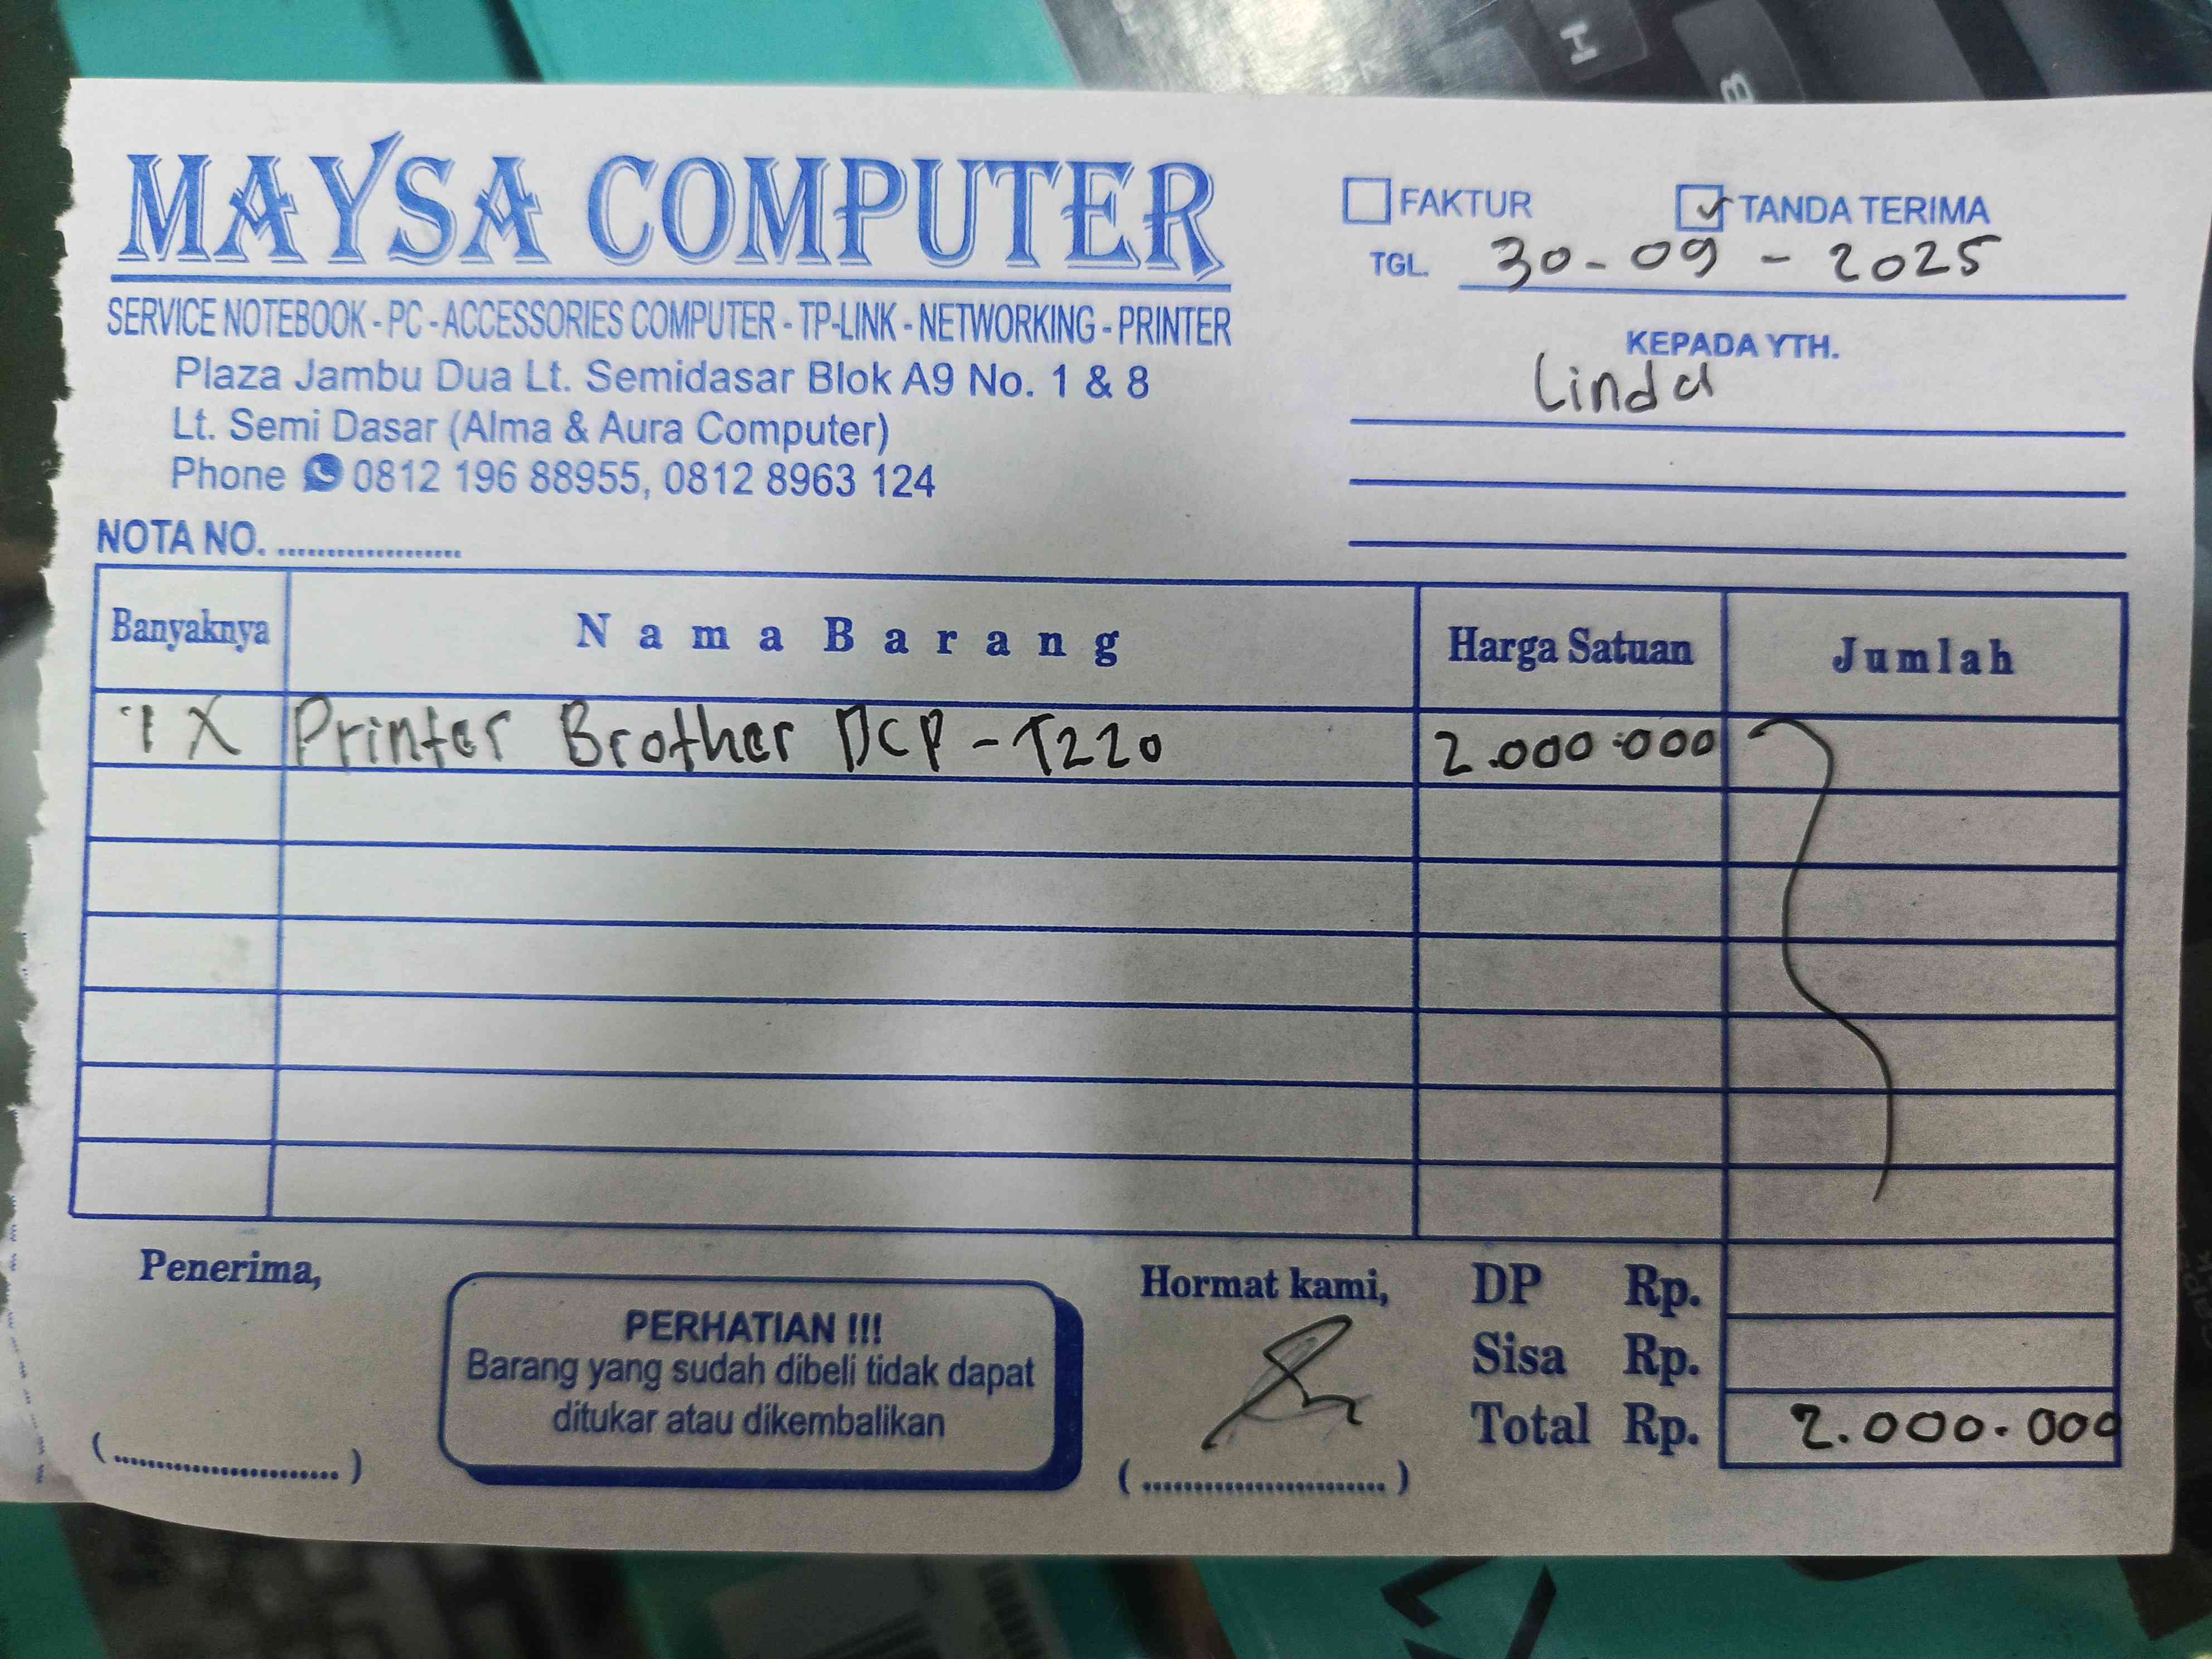 MAYSA COMPUTER
SERVICE NOTEBOOK - PC - ACCESSORIES COMPUTER - TP-LINK - NETWORKING - PRINTER
Plaza Jambu Dua Lt. Semidasar Blok A9 No. 1 & 8
Lt. Semi Dasar (Alma & Aura Computer)
Phone 0812 196 88955, 0812 8963 124
NOTA NO. ....................
FAKTUR TANDA TERIMA
TGL. 30-09-2025
KEPADA YTH.
Linda
Banyaknya Nama Barang Harga Satuan Jumlah
1 X Printer Brother DCP-T220 2.000.000
Penerima,
(..........................)
PERHATIAN !!!
Barang yang sudah dibeli tidak dapat
ditukar atau dikembalikan
Hormat kami,
(..........................)
DP Rp.
Sisa Rp.
Total Rp. 2.000.000
H
B